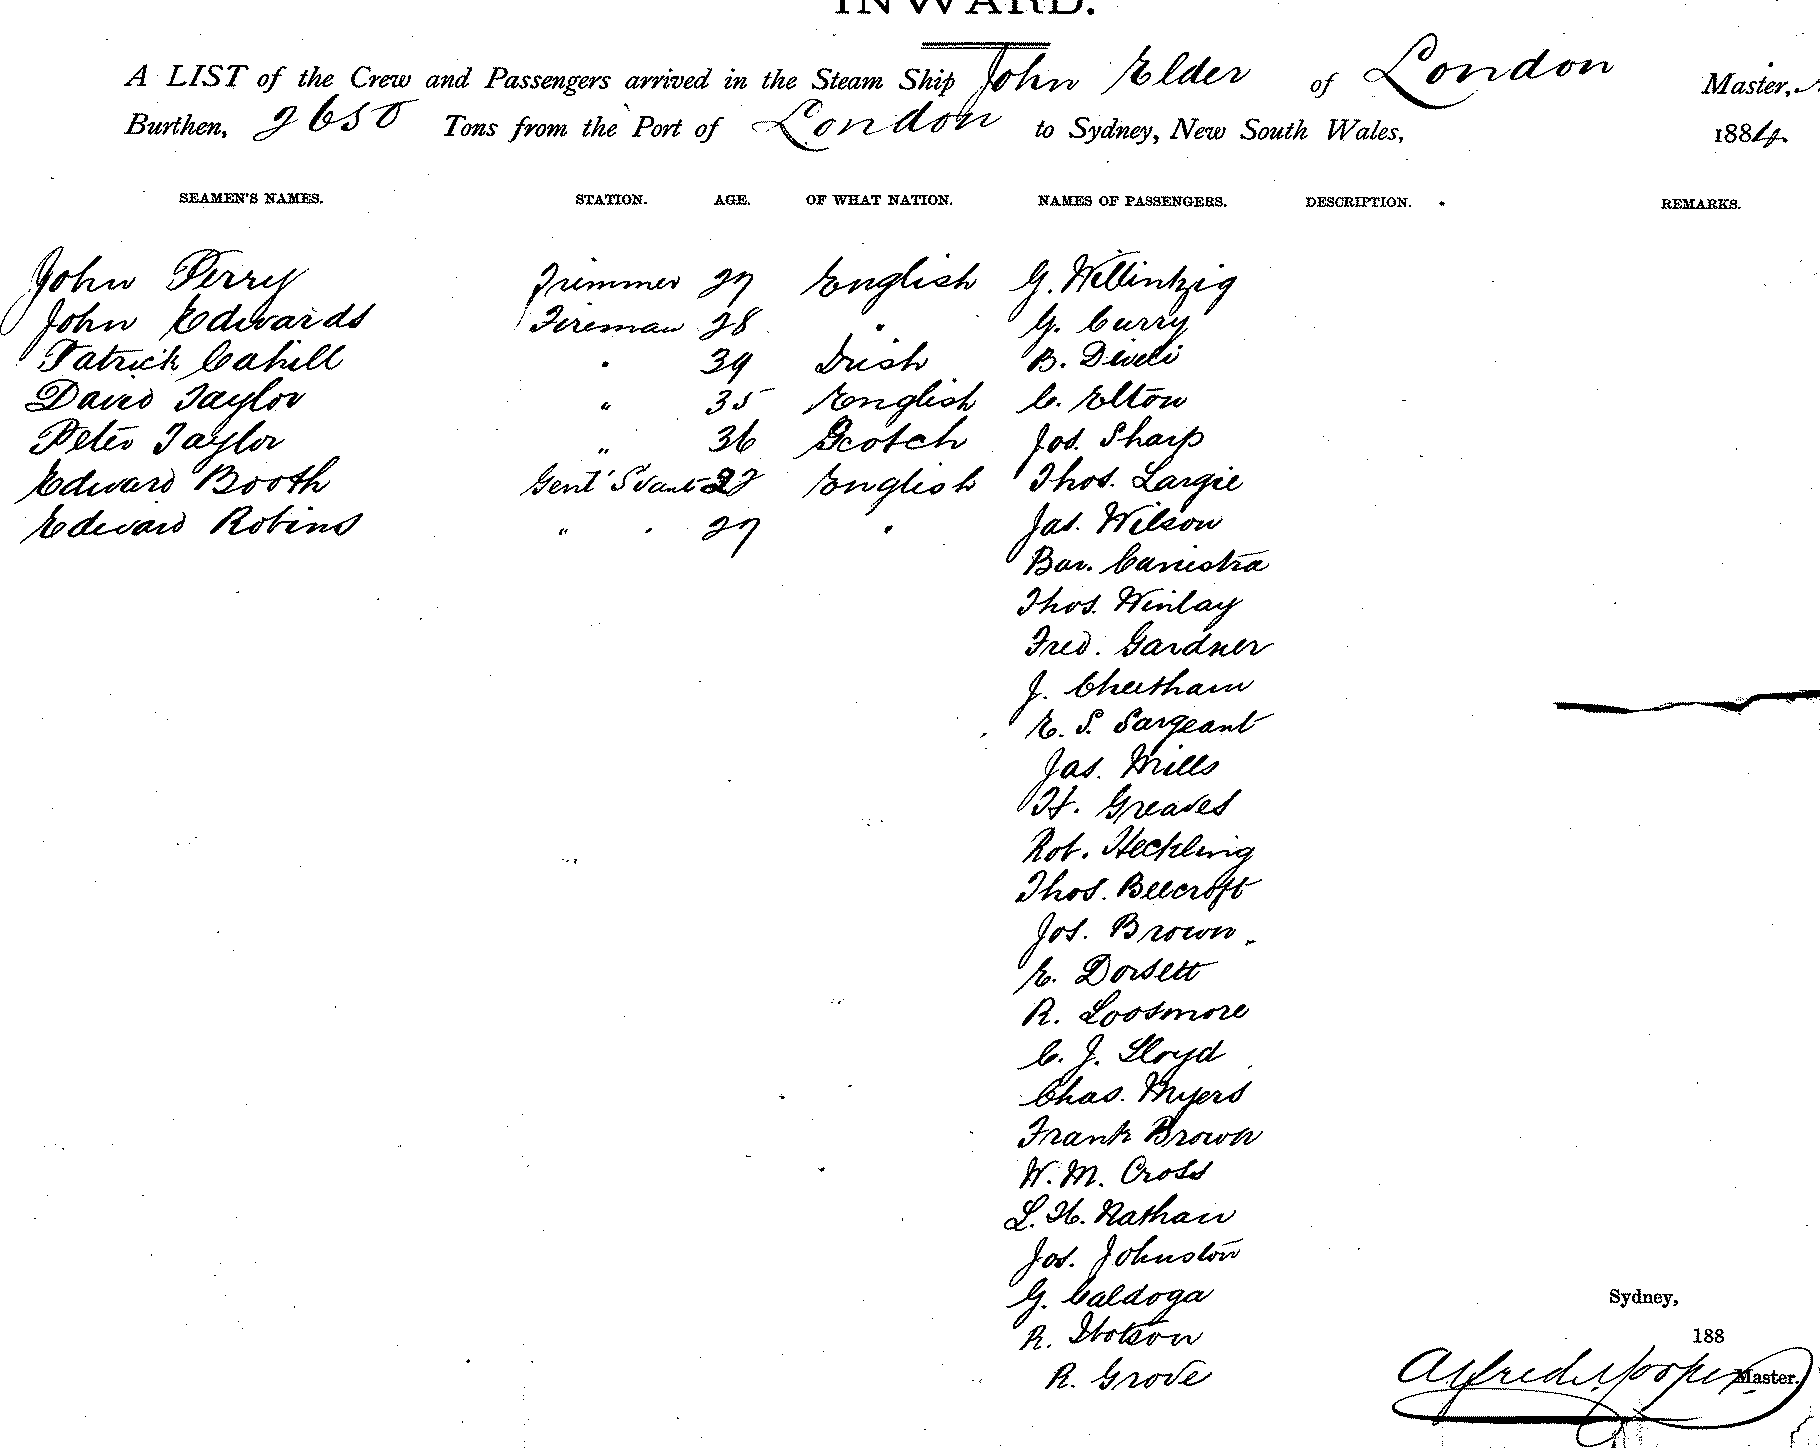 INWARD.
A LIST of the Crew and Passengers arrived in the Steam Ship John Elder of London Master,
Burthen, 2650 Tons from the Port of London to Sydney, New South Wales, 1884
SEAMEN'S NAMES. STATION. AGE. OF WHAT NATION. NAMES OF PASSENGERS. DESCRIPTION. REMARKS.
John Perry Trimmer 27 English G. Willintzig
John Edwards Fireman 28 " G. Curry
Patrick Cahill " 39 Irish B.
David Taylor " 35 English C. Elton
Peter Taylor " 36 Scotch Jos. Sharp
Edward Booth Genl Svant English Thos. Largie
Edward Robins " " 27 " Jas. Wilson
Bar. Canistra
Thos. Winlay
Fred. Gardner
J. Cheetham
E. S. Sargeant
Jas. Mills
H. Greaves
Rob. Heckling
Thos. Beecroft
Jos. Brown
E. Dorsett
R. Loosmore
C. J. Lloyd
Chas. Myers
Frank Brown
W. M. Cross
L. H. Nathan
Jos. Johnston
G. Caldoga
R. Ibotson
R. Grove
Sydney,
188
Alfred Master.